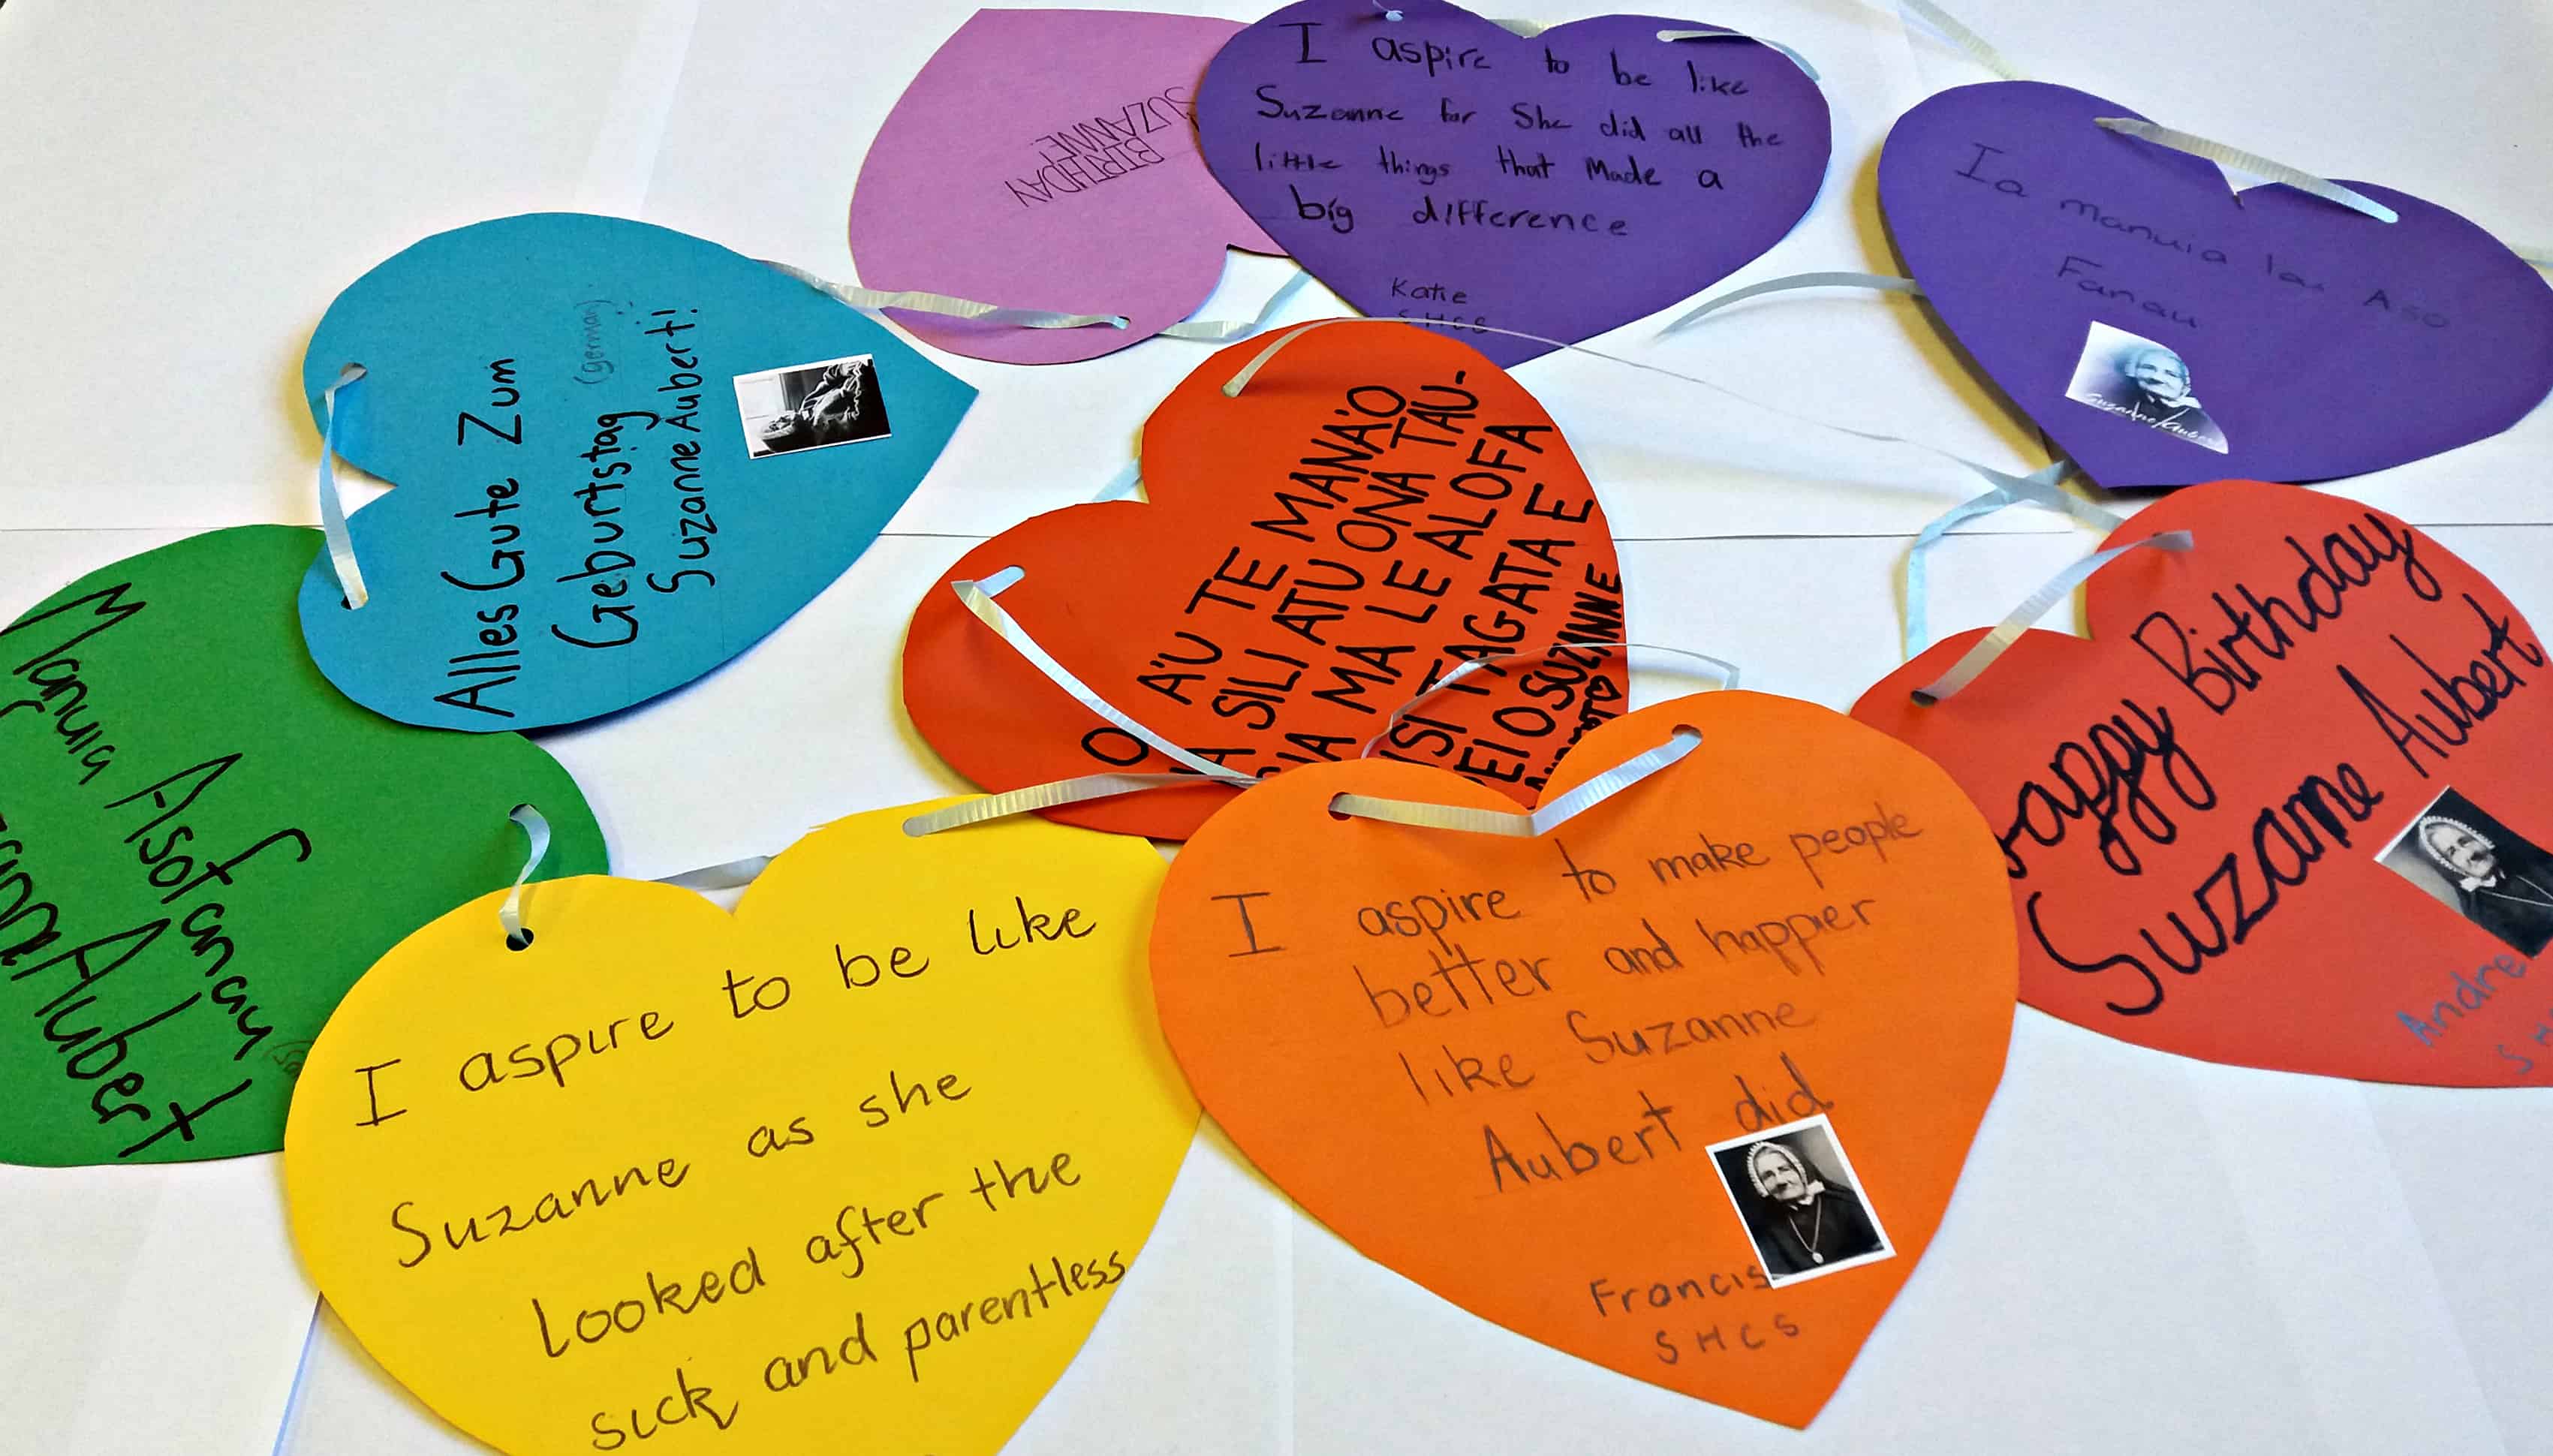 SUZANNE!
BIRTHDAY
I aspire to be like
Suzanne for She did all the
little things that made a
big difference
Katie
SHCS
Ia manuia lau Aso
Fanau
Suzanne Aubert
Alles Gute Zum
Geburtstag (german)
Suzanne Aubert!
O A'U TE MANA'O
SILI ATU ONA TAU-
MA LE ALOFA
ISI TAGATA E
PEI O SUZANNE
Happy Birthday
Suzanne Aubert
Andre
Manuia Asofanau
Aubert
I aspire to be like
Suzanne as she
looked after the
sick and parentless
I aspire to make people
better and happier
like Suzanne
Aubert did
Francis
SHCS